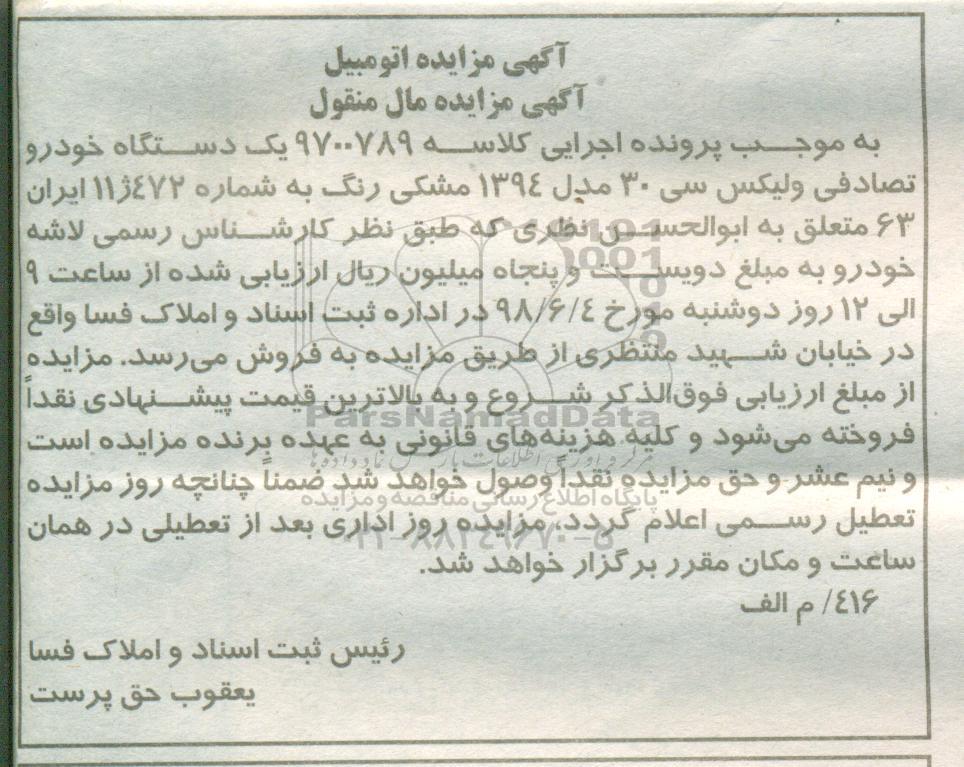 آگهی مزایده اتومبیل
آگهی مزایده مال منقول
به موجب پرونده اجرایی کلاسه ۹۷۰۰۷۸۹ یک دستگاه خودرو
تصادفی ولیکس سی ۳۰ مدل ۱۳۹۴ مشکی رنگ به شماره ۴۷۲ژ۱۱ ایران
۶۳ متعلق به ابوالحسن نظری که طبق نظر کارشناس رسمی لاشه
خودرو به مبلغ دویست و پنجاه میلیون ریال ارزیابی شده از ساعت ۹
الی ۱۲ روز دوشنبه مورخ ۹۸/۶/۴ در اداره ثبت اسناد و املاک فسا واقع
در خیابان شهید منتظری از طریق مزایده به فروش می‌رسد. مزایده
از مبلغ ارزیابی فوق‌الذکر شروع و به بالاترین قیمت پیشنهادی نقداً
فروخته می‌شود و کلیه هزینه‌های قانونی به عهده برنده مزایده است
و نیم عشر و حق مزایده نقداً وصول خواهد شد ضمناً چنانچه روز مزایده
تعطیل رسمی اعلام گردد، مزایده روز اداری بعد از تعطیلی در همان
ساعت و مکان مقرر برگزار خواهد شد.
۴۱۶/ م الف
رئیس ثبت اسناد و املاک فسا
یعقوب حق پرست
ParsNamadData
پایگاه اطلاع رسانی مناقصه و مزایده